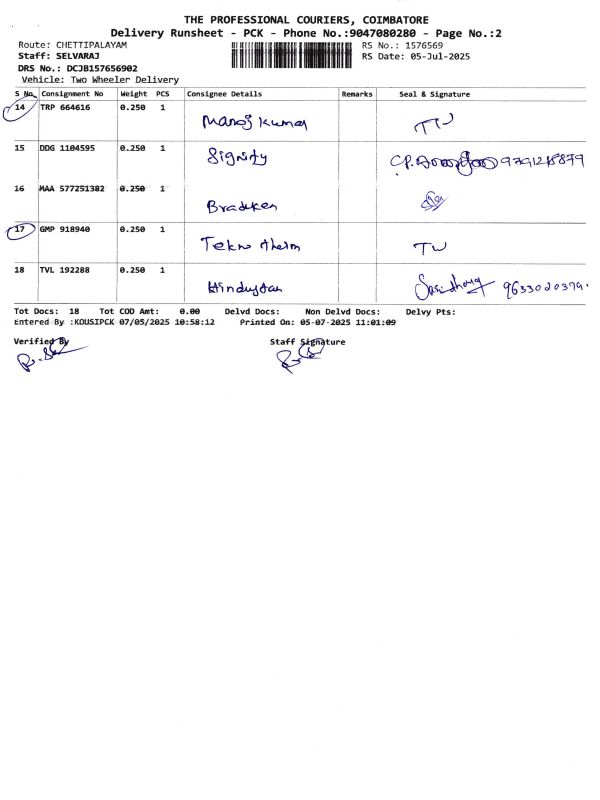 THE PROFESSIONAL COURIERS, COIMBATORE
Delivery Runsheet - PCK - Phone No.:9047080280 - Page No.:2
Route: CHETTIPALAYAM RS No.: 1576569
Staff: SELVARAJ RS Date: 05-Jul-2025
DRS No.: DCJB157656902
Vehicle: Two Wheeler Delivery
S No. Consignment No Weight PCS Consignee Details Remarks Seal & Signature
14 TRP 664616 0.250 1 Manoj Kumar
15 DDG 1104595 0.250 1 Signify
16 MAA 577251382 0.250 1 Bradken
17 GMP 918940 0.250 1 Tekno therm
18 TVL 192288 0.250 1 Hindustan 9633020379
Tot Docs: 18 Tot COD Amt: 0.00 Delvd Docs: Non Delvd Docs: Delvy Pts:
Entered By :KOUSIPCK 07/05/2025 10:58:12 Printed On: 05-07-2025 11:01:09
Verified By Staff Signature